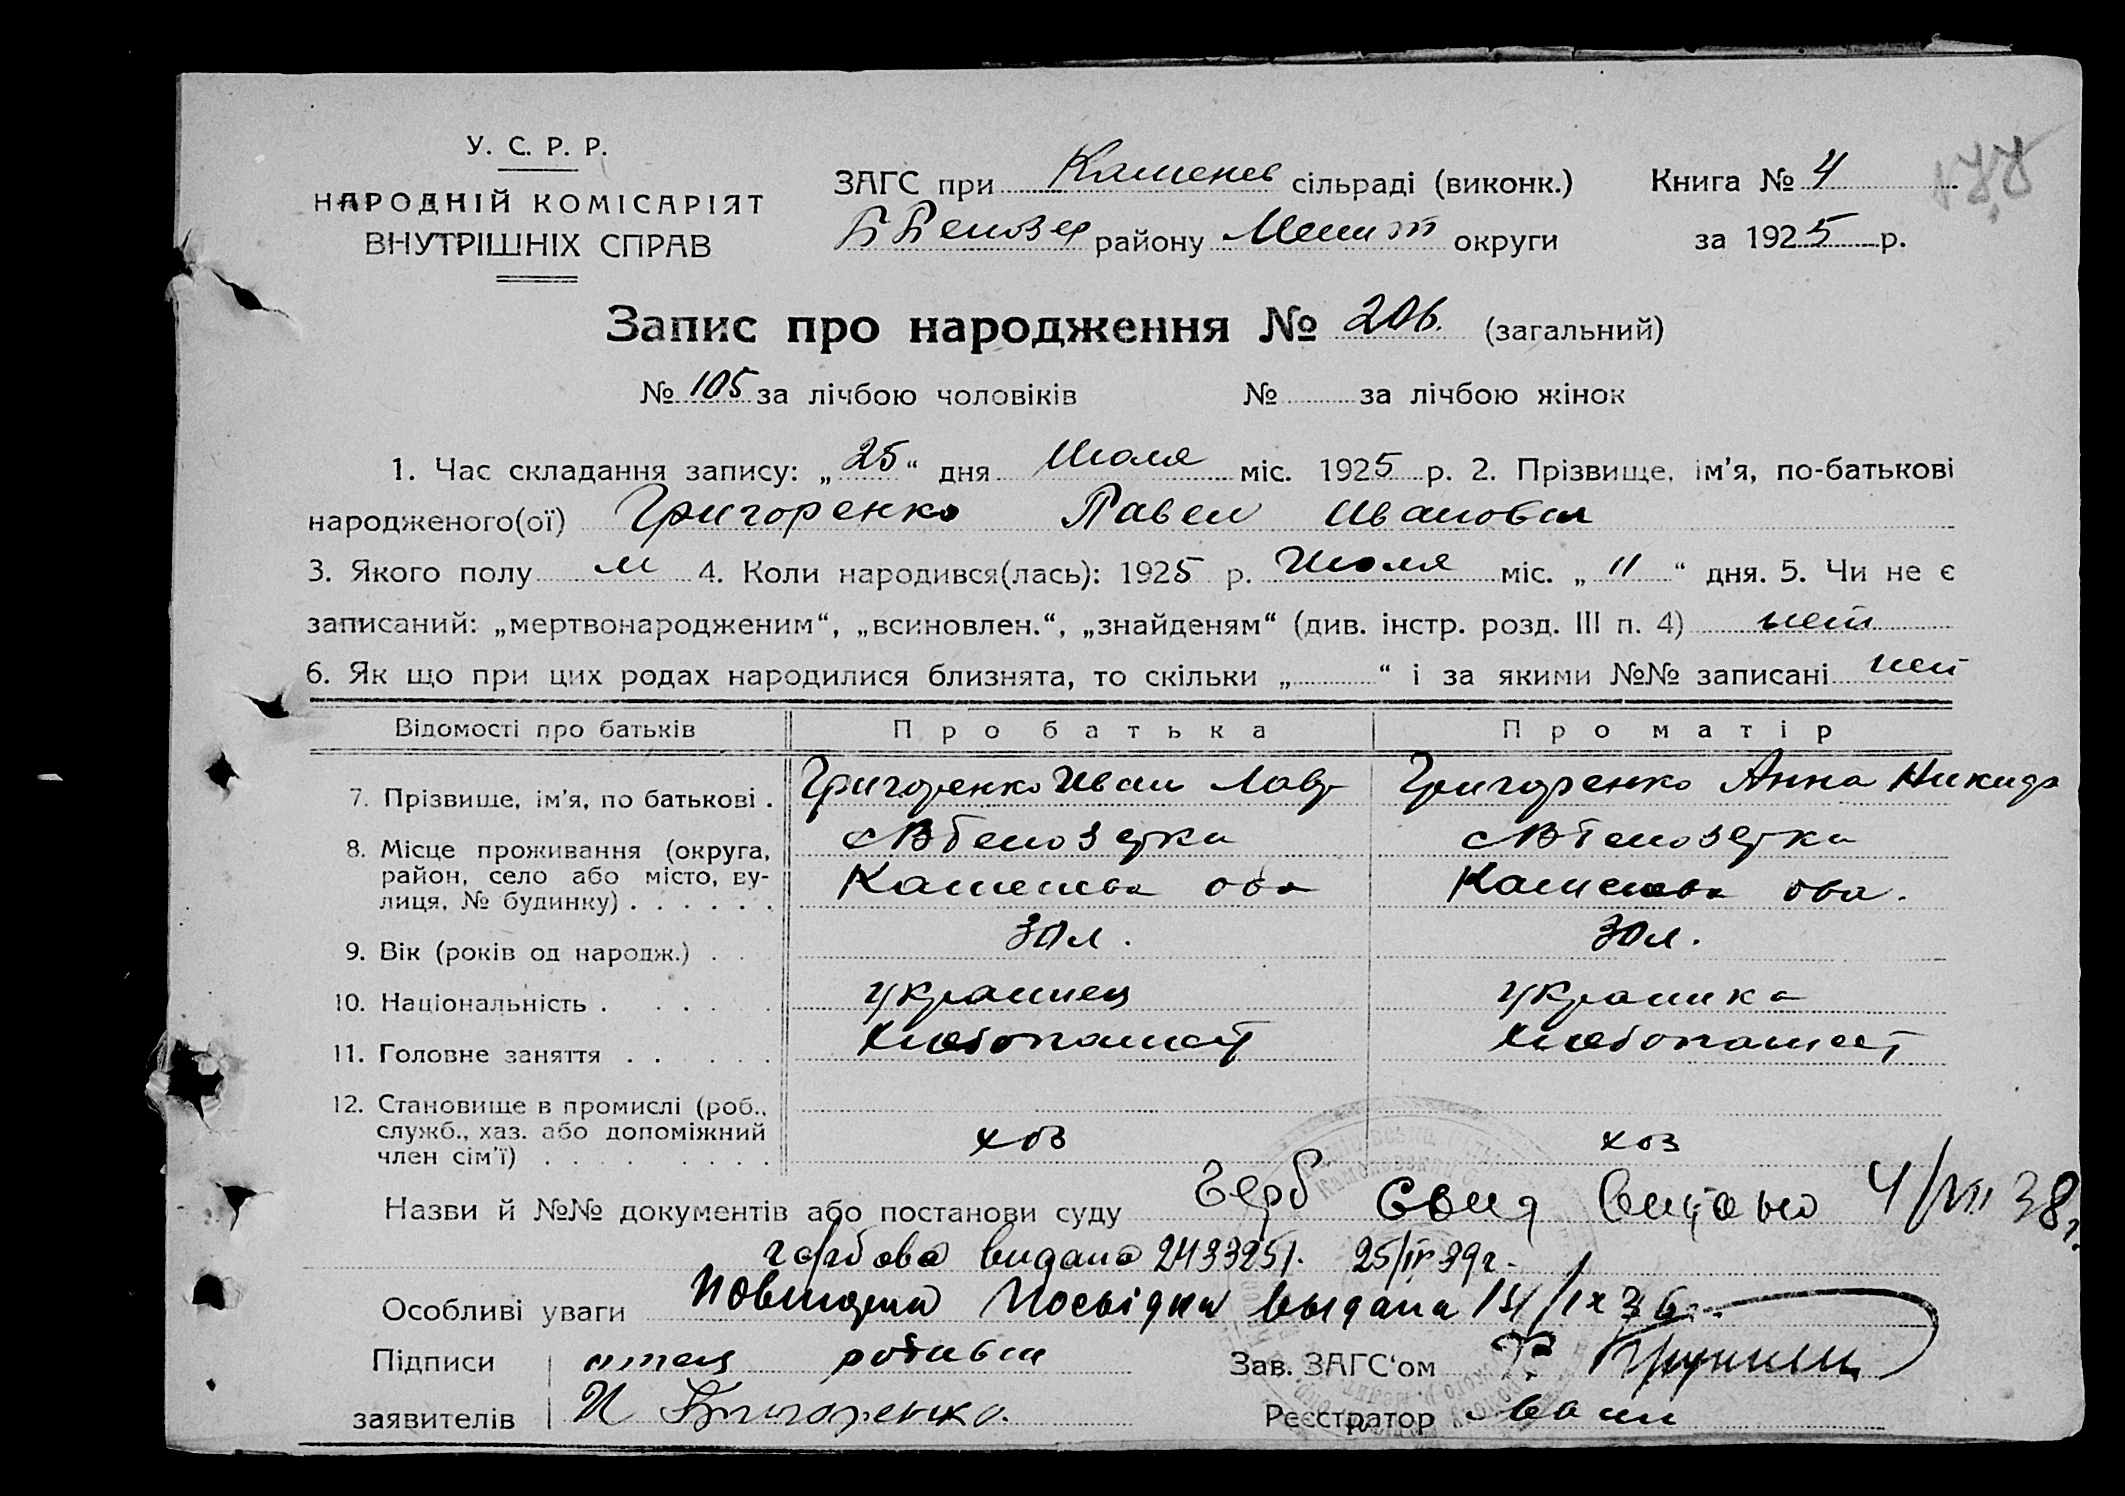 У. С. Р. Р.
НАРОДНІЙ КОМІСАРІЯТ
ВНУТРІШНІХ СПРАВ
ЗАГС при Каменев сільраді (виконк.)
Б Белозер району Мелит округи
Книга № 4
за 1925 р.
Запис про народження № 206. (загальний)
№ 105 за лічбою чоловіків № за лічбою жінок
1. Час складання запису: „25“ дня Июля міс. 1925 р. 2. Прізвище, ім’я, по-батькові
народженого(ої) Григоренко Павел Иванович
3. Якого полу м 4. Коли народився(лась): 1925 р. Июля міс. „11“ дня. 5. Чи не є
записаний: „мертвонародженим“, „всиновлен.“, „знайденям“ (див. інстр. розд. III п. 4) нет
6. Як що при цих родах народилися близнята, то скільки „ “ і за якими №№ записані нет
Відомості про батьків Про батька Про матір
7. Прізвище, ім’я, по батькові . Григоренко Иван Лавр Григоренко Анна Никида
8. Місце проживання (округа, район, село або місто, вулиця, № будинку) . . . . . .
с В Белозерка с В Белозерка
Каменска Каменска
9. Вік (років од народж.) . . 30 л. 30 л.
10. Національність . . . . . украинец украинка
11. Головне заняття . . . . . Хлебопашест Хлебопашест
12. Становище в промислі (роб., служб., хаз. або допоміжний член сім’ї) . . . . . . . . хоз хоз
Назви й №№ документів або постанови суду Герб Свид Видано 4/VII 38р.
гербова видано 2433251. 25/IV 39г.
Особливі уваги выдана 14/IX 36г.
Підписи отец
заявителів И Григоренко.
Зав. ЗАГС‘ом
Реєстратор